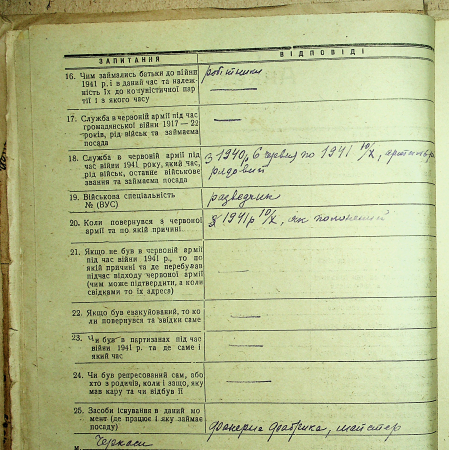 ЗАПИТАННЯ ВІДПОВІДІ
16. Чим займались батьки до війни
1941 р. і в даний час та належ-
ність їх до комуністичної пар-
тії і з якого часу
робітники
17. Служба в червоній армії під час
громадянської війни 1917—22
років, рід військ та займаєма
посада
18. Служба в червоній армії під
час війни 1941 року, який час,
рід військ, останнє військове
звання та займаєма посада
з 1940, 6 по 1941 10/X,
рядовий
19. Військова спеціальність
№ (ВУС)
разведчик
20. Коли повернувся з червоної
армії та по якій причині
1941р 10/X, як полонений
21. Якщо не був в червоній армії
під час війни 1941 р., то по
якій причині та де перебував
підчас відходу червоної армії
(чим може підтвердити, а коли
свідками то їх адреса)
22. Якщо був евакуйований, то ко
ли повернувся та звідки саме
23. Чи був в партизанах під час
війни 1941 р. та де саме і
який час
24. Чи був репресований сам, або
хто з родичів, коли і защо, яку
мав кару та чи відбув її
25. Засоби існування в даний мо
мент (де працює і яку займає
посаду)
фанерна фабрика, майстер
м. Черкаси